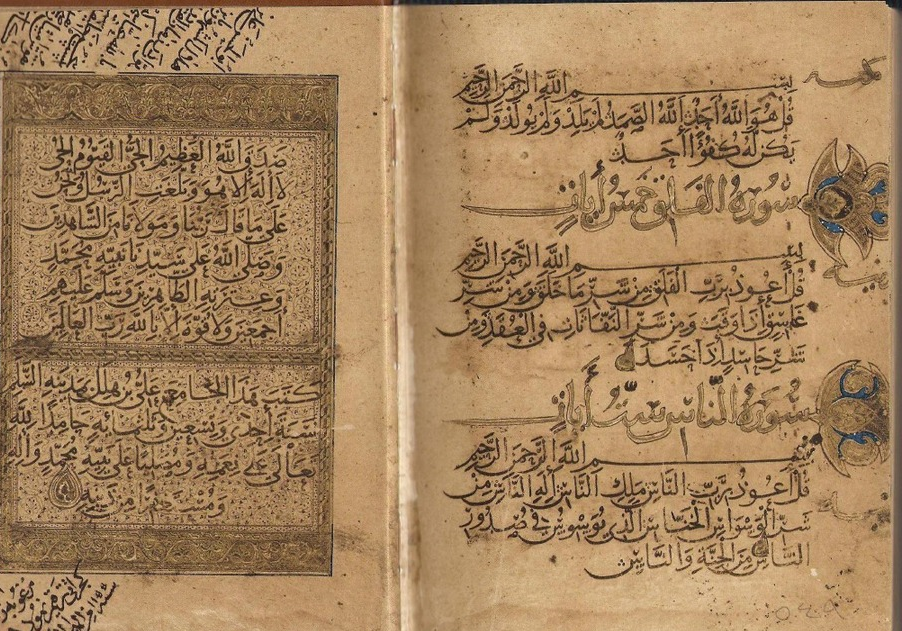 بسم الله الرحمن الرحيم
قل هو الله أحد الله الصمد لم يلد ولم يولد ولم
يكن له كفوا أحد
سورة الفلق خمس أيات
بسم الله الرحمن الرحيم
قل أعوذ برب الفلق من شر ما خلق ومن شر
غاسق إذا وقب ومن شر النفاثات في العقد ومن
شر حاسد إذا حسد
سورة الناس ست أيات
بسم الله الرحمن الرحيم
قل أعوذ برب الناس ملك الناس إله الناس من
شر الوسواس الخناس الذي يوسوس في صدور
الناس من الجنة والناس
صدق الله العظيم الحي القيوم الحي
لا إله إلا هو وبلغت الرسل ونحن
على ما قال ربنا ومولانا من الشاهدين
وصلى الله على سيدنا نبيه محمد
وعترته الطاهرين وسلم عليهم
أجمعين ولا قوة إلا بالله رب العالمين
كتب هذا الجامع علي بن هلال بمدينة السلام
سنة أحدى وتسعين وثلثمائة حامدا لله
تعالى على نعمه ومصليا على نبيه محمد وآله
ومستغفرا من ذنبه